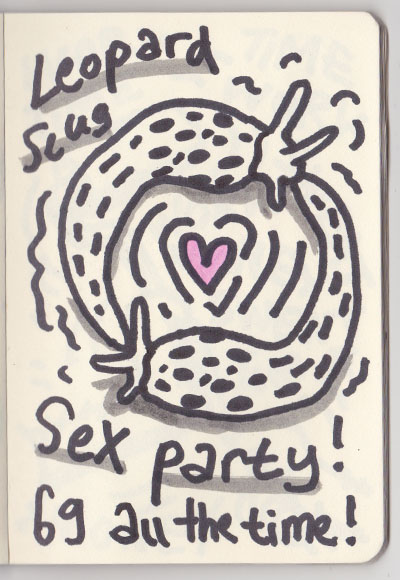 Leopard
Slug
Sex party!
69 all the time!